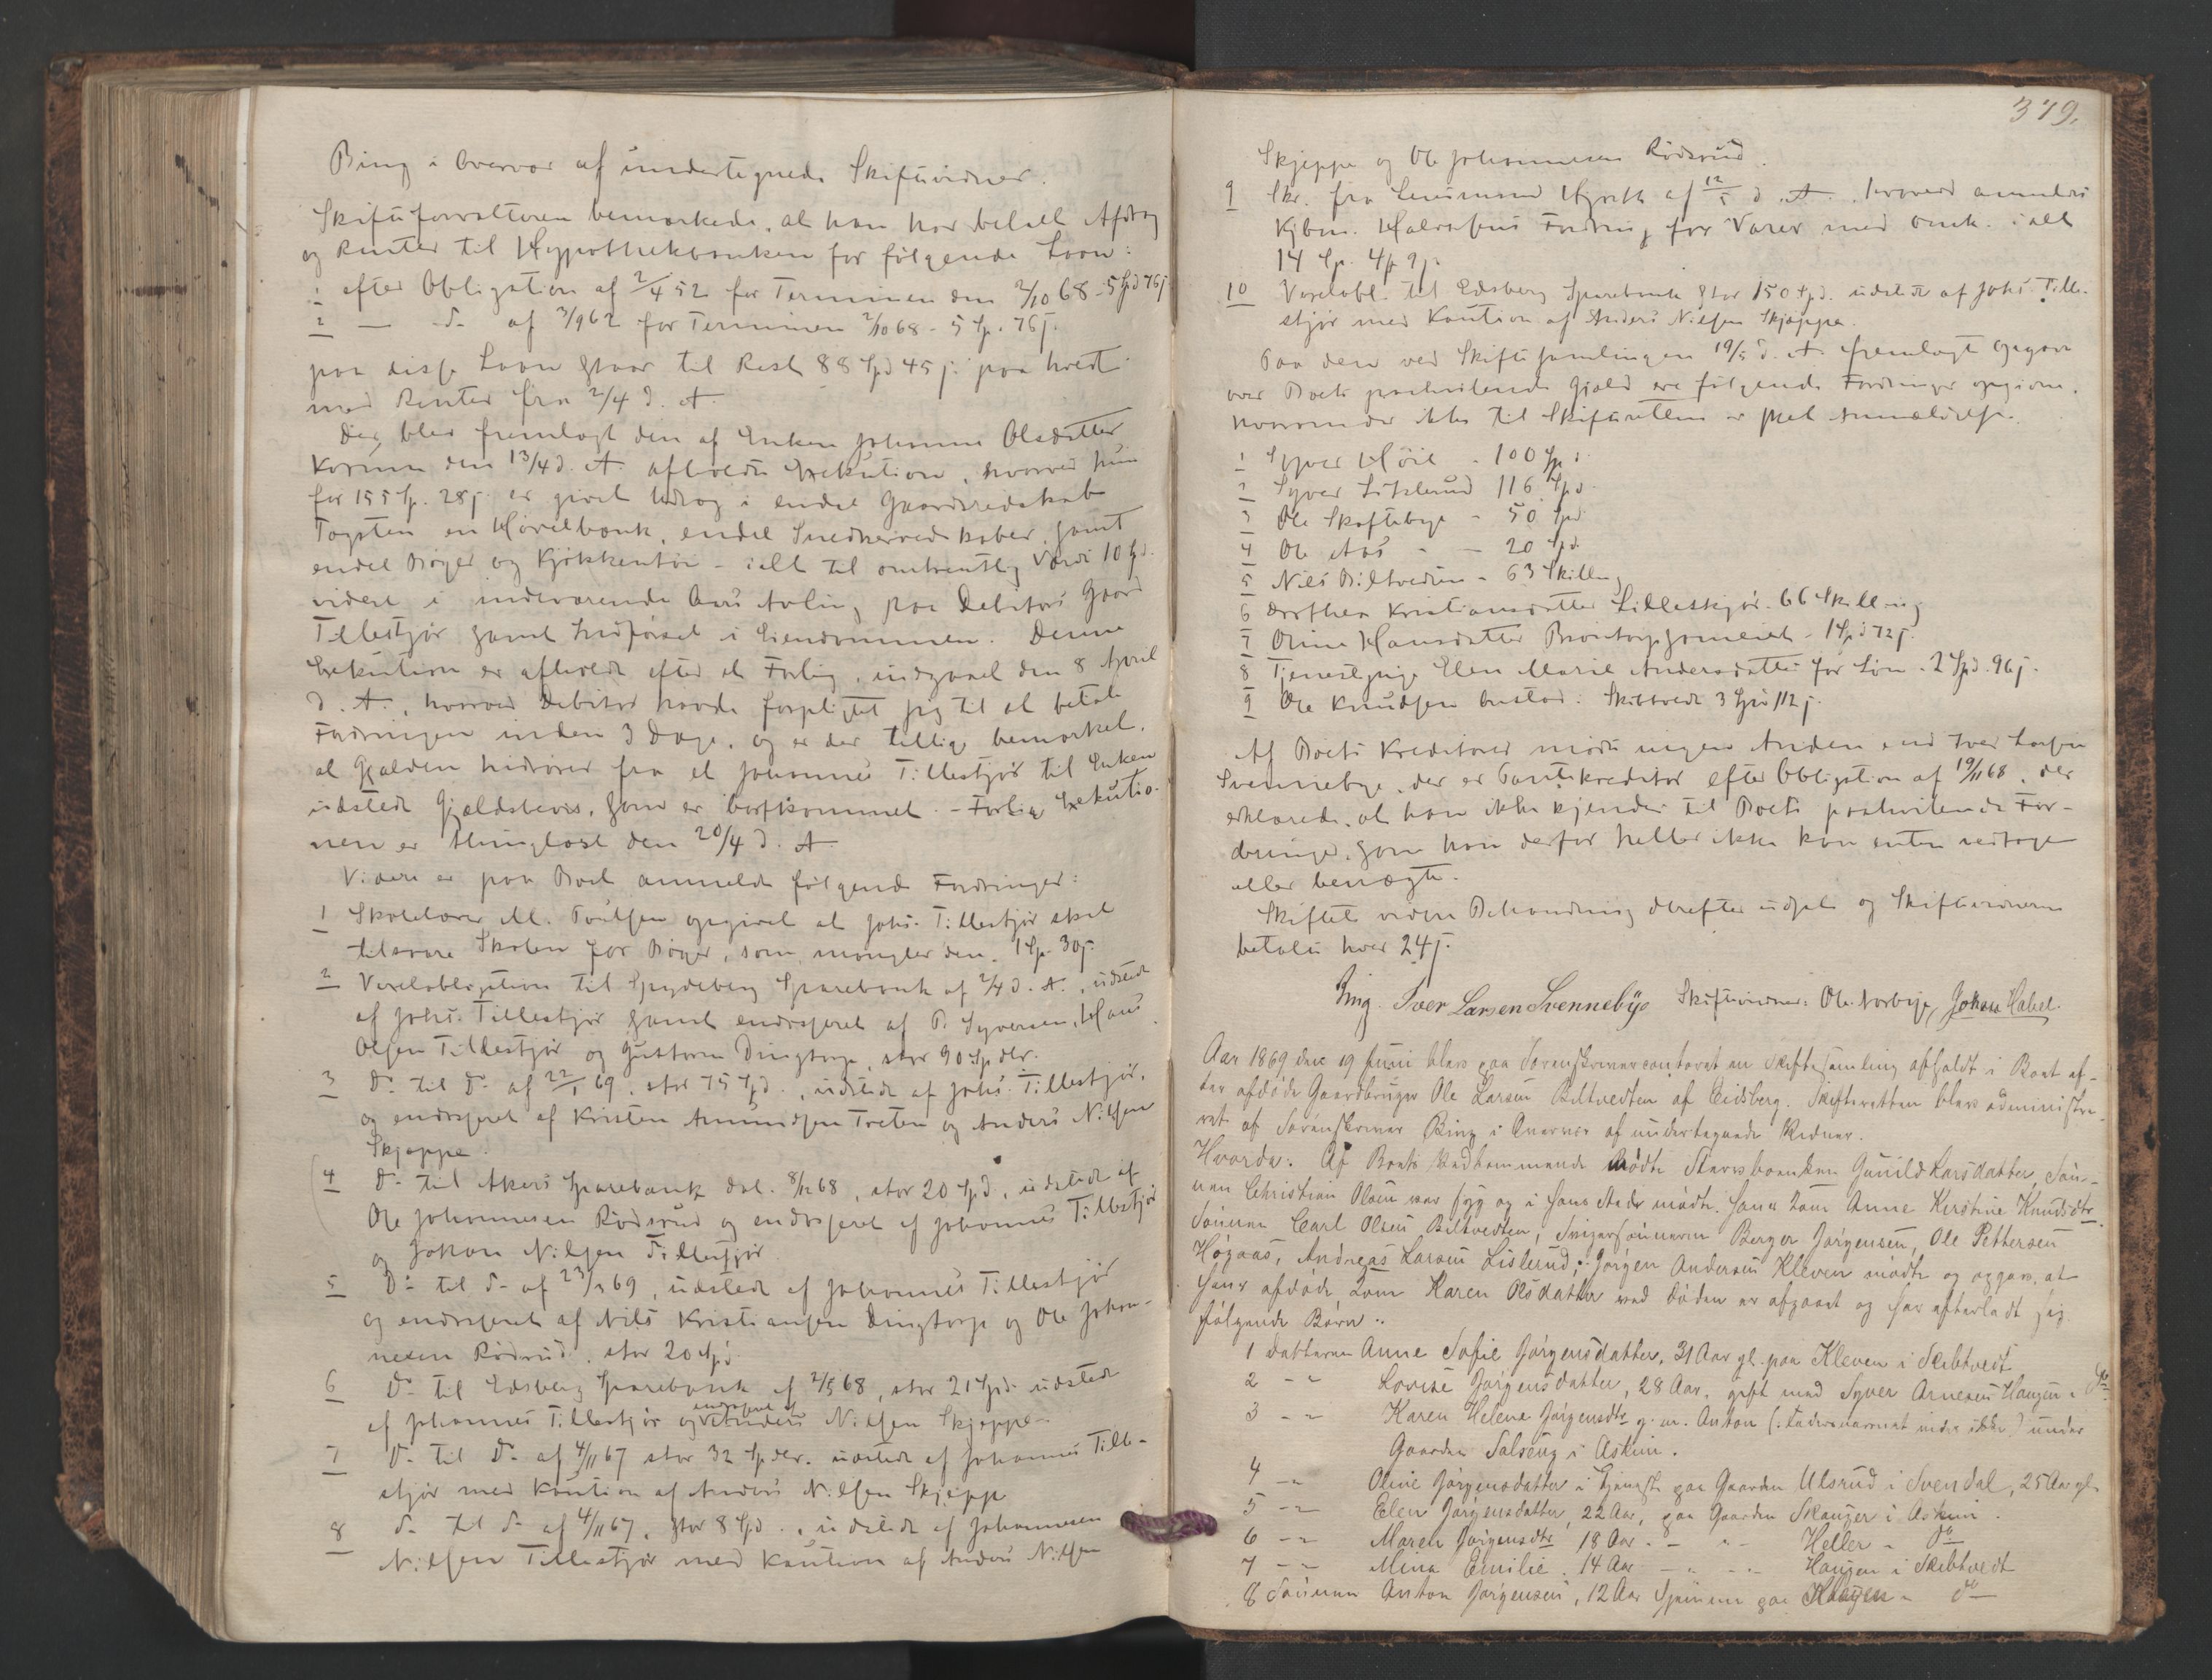 Bing i Overvær af undertegnede Skiftevidner.
Skifteforvalteren bemærkede, at han har betalt Afdrag
og Renter til Hypothekbanken for følgende Laan:
1 efter Obligation af 2/4 52 for Terminen den 2/10 68 - 5 Spd 76 s
2 — do af 3/9 62 for Terminen 2/10 68 - 5 Sp. 76 s.
paa disse Laan staar til Rest 88 Spd 45 s. paa hvert
med Renter fra 2/4 d. A.
Der blev fremlagt den af Enken Johanne Olsdatter
den 13/4 d. A. afholdte Exekution, hvorved hun
for 155 Sp. 28 s. er givet Udlæg i endel Gaardsredskab
Tagsten en Høvelbænk, endel Snedkerredskaber, samt
endel Bøger og Kjøkkentøi - ialt til omtrentlig Værdi 10 Spd.
videre i indeværende Aars Avling paa Debitors Gaard
Tillestjør samt Indførsel i Eiendommen. Denne
Exekution er afholdt efter et Forlig, indgaaet den 8 April
d. A., hvorved Debitor havde forpligtet sig til at betale
Fordringen inden 3 Dage, og er der tillige bemærket,
at Gjælden hidrører fra et Johannes Tillestjør til Enken
udstedt Gjældsbevis, som er bortkommet. - Forlig Exekutio-
nen er thinglæst den 20/4 d. A.
Videre er paa Boet anmeldt følgende Fordringer:
1 Skolelærer M. Poulsen opgivet at Johs. Tillestjør skal
tilsvare Skolen for Bøger, som mangler den. 1 Sp. 30 s.
2 Vexelobligation til Spydeberg Sparebank af 2/4 d. A., udstedt
af Johs. Tillestjør samt endosseret af P. Syversen, Hans
Olsen Tillestjør og Guttorm Dingtorp, stor 90 Spdlr.
3 Do til Do af 22/1 69, stor 75 Spd., udstedt af Johs. Tillestjør,
og endosseret af Kristen Amundsen Treten og Anders Nilsen
Skjeppe.
4 Do til Akers Sparebank dat. 8/12 68, stor 20 Spd, udstedt af
Ole Johannesen Rødsrud og endosseret af Johannes Tillestjør
og Johan Nilsen Tillestjør
5 Do til do af 23/2 69, udstedt af Johannes Tillestjør
og endosseret af Nils Kristiansen Dingtorp og Ole Johan-
nesen Rødsrud, stor 20 Spd
6 Do til Edsberg Sparebank af 2/5 68, stor 21 Spd. udstedt
af Johannes Tillestjør og endosseret af Anders Nilsen Skjeppe
7 Do til Do af 4/11 67 stor 32 Spdlr. udstedt af Johannes Tille-
stjør med Kaution af Anders Nilsen Skjeppe
8 do til do af 4/11 67, stor 8 Spd., udstedt af Johannesen
Nilsen Tillestjør med Kaution af Anders Nilsen
379.
Skjeppe og Ole Johannesen Rødsrud.
9 Skr. fra Lensmand af 12/5 d. A., hvorved anmeldes
Kjbm. Halvorsens Fordring for Varer med Omk. ialt
14 Sp. 4 9 s.
10 Vexelobl. til Edsberg Sparebank stor 150 Spd. udstedt af Johs. Tille-
stjør med Kaution af Anders Nilsen Skjeppe.
Paa den ved Skiftesamlingen 19/5 d. A. fremlagt Opgave
over Boets paahvilende Gjæld ere følgende Fordringer opgivne,
hvorom der ikke til Skifteretten er skeet Anmeldelse.
1 Syver Høie - 100 Spd
2 Syver 116 Spd
3 Ole Skoftebye - 50 Spd
4 Ole Aas - - 20 Spd
5 Nils Biltvedten - 63 Skilling
6 Dorthea Kristiansdatter Lilleskjør - 66 Skilling
7 Oline Hansdatter - 1 Spd 72 s.
8 Tjenestpige Elen Marie Andersdatter for Løn - 2 Spd. 96 s.
9 Ole Knudsen i Skibtvedt 3 Spd 112 s.
Af Boets Kreditorer mødte ingen Anden end Iver Larsen
Svennebye, der er Pantekreditor efter Obligation af 19/11 68, der
erklærede, at han ikke kjender til Boets paahvilende For-
dringer, som han derfor heller ikke kan enten vedtage
eller benægte.
Skiftets videre Behandling derefter udsat og Skiftevidnerne
betalt hver 24 s.
Bing. Iver Larsen Svennebye Skiftevidner: Ole Norbye, Johan Habel.
Aar 1869 den 19 Juni blev paa Sorenskrivercontoret en Skiftesamling afholdt i Boet ef-
ter afdøde Gaardbruger Ole Larsen Biltvedten af Eidsberg. Skifteretten blev administre-
ret af Sorenskriver Bing i Overvær af undertegnede Vidner.
Hvorda: Af Boets Vedkommende mødte Stervboenken Gunild Larsdatter, Søn-
nen Christian Olsen var syg og i hans Sted mødte hans Kone Anne Kirstine Knudsdtr.
Sønnen Carl Olsen Biltvedten, Svigersønnerne Berger Jørgensen, Ole Pettersen
Høgaas, Andreas Larsen Lislerud; Jørgen Andersen Kleven mødte og opgav, at
hans afdøde Kone Karen Olsdatter ved Døden er afgaaet og har efterladt sig
følgende Børn:
1 Datteren Anne Sofie Jørgensdatter, 31 Aar gl. paa Kleven i Skibtvedt
2 - " Lovise Jørgensdatter, 28 Aar, gift med Syver Arnesen Haugen i do
3 - " Karen Helene Jørgensdtr. g. m. Anton (: Fadernavnet vides ikke :) under
Gaarden Salseng i Askim.
4 - " Oline Jørgensdatter i Tjeneste paa Gaarden Ulsrud i Svendal, 25 Aar gl.
5 - " Elen Jørgensdatter, 22 Aar, paa Gaarden Skauger i Askim.
6 - " Maren Jørgensdtr 18 Aar - " - " Heller - do
7 - " Mina Emilie. 14 Aar - " - " Haugen i Skibtvedt
8 Sønnen Anton Jørgensen, 12 Aar Hjemme paa Haugen - do